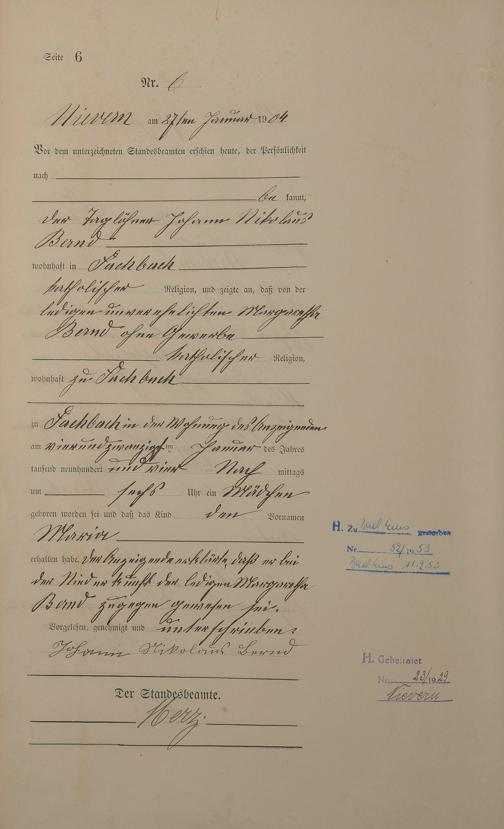 Seite 6
Nr. 6
Nievern am 27ten Januar 1904.
Vor dem unterzeichneten Standesbeamten erschien heute, der Persönlichkeit
nach
be kannt,
der Taglöhner Johann Nikolaus
Bernd
wohnhaft in Fachbach
katholischer Religion, und zeigte an, daß von der
ledigen unverehelichten Margaretha
Bernd ohne Gewerbe
katholischer Religion,
wohnhaft zu Fachbach
zu Fachbach in der Wohnung des Anzeigenden
am vierundzwanzigsten Januar des Jahres
tausend neunhundert und vier Nach mittags
um sechs Uhr ein Mädchen
geboren worden sei und daß das Kind den Vornamen
Maria
erhalten habe. Der Anzeigende erklärte, daß er bei
der Niederkunft der ledigen Margaretha
Bernd zugegen gewesen sei.
Vorgelesen, genehmigt und unterschrieben:
Johann Nikolaus Bernd
Der Standesbeamte.
Herz
H. Zu Bad Ems gestorben
Nr. 52/1953
Bad Ems 11.9.53
H. Geheiratet
Nr. 23/1929
Nievern